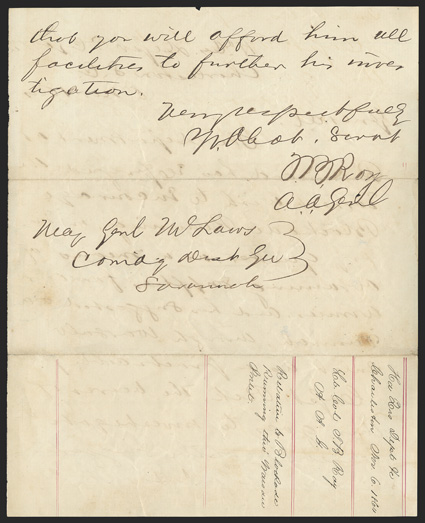 that you will afford him all
facilities to further his inves
tigation.
Very respectfully
Yr Obdt. Servt
T B Roy
A. A. Genl
Maj Genl McLaws
Comdg Dist Ga
Savannah
Charleston Nov 6 1864
Lt Col T B Roy
A A G
Relative to Blockade
Running thro Warsaw